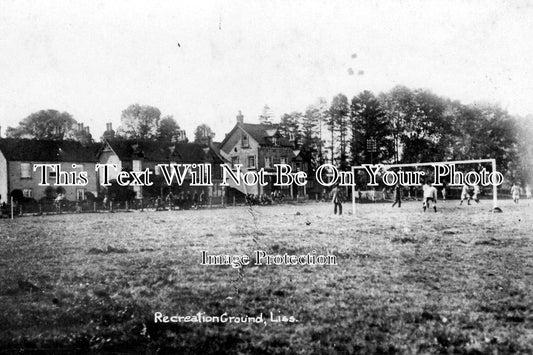 This Text Will Not Be On Your Photo
www.theoldpicturearchive.com
Image Protection
Recreation Ground, Liss.